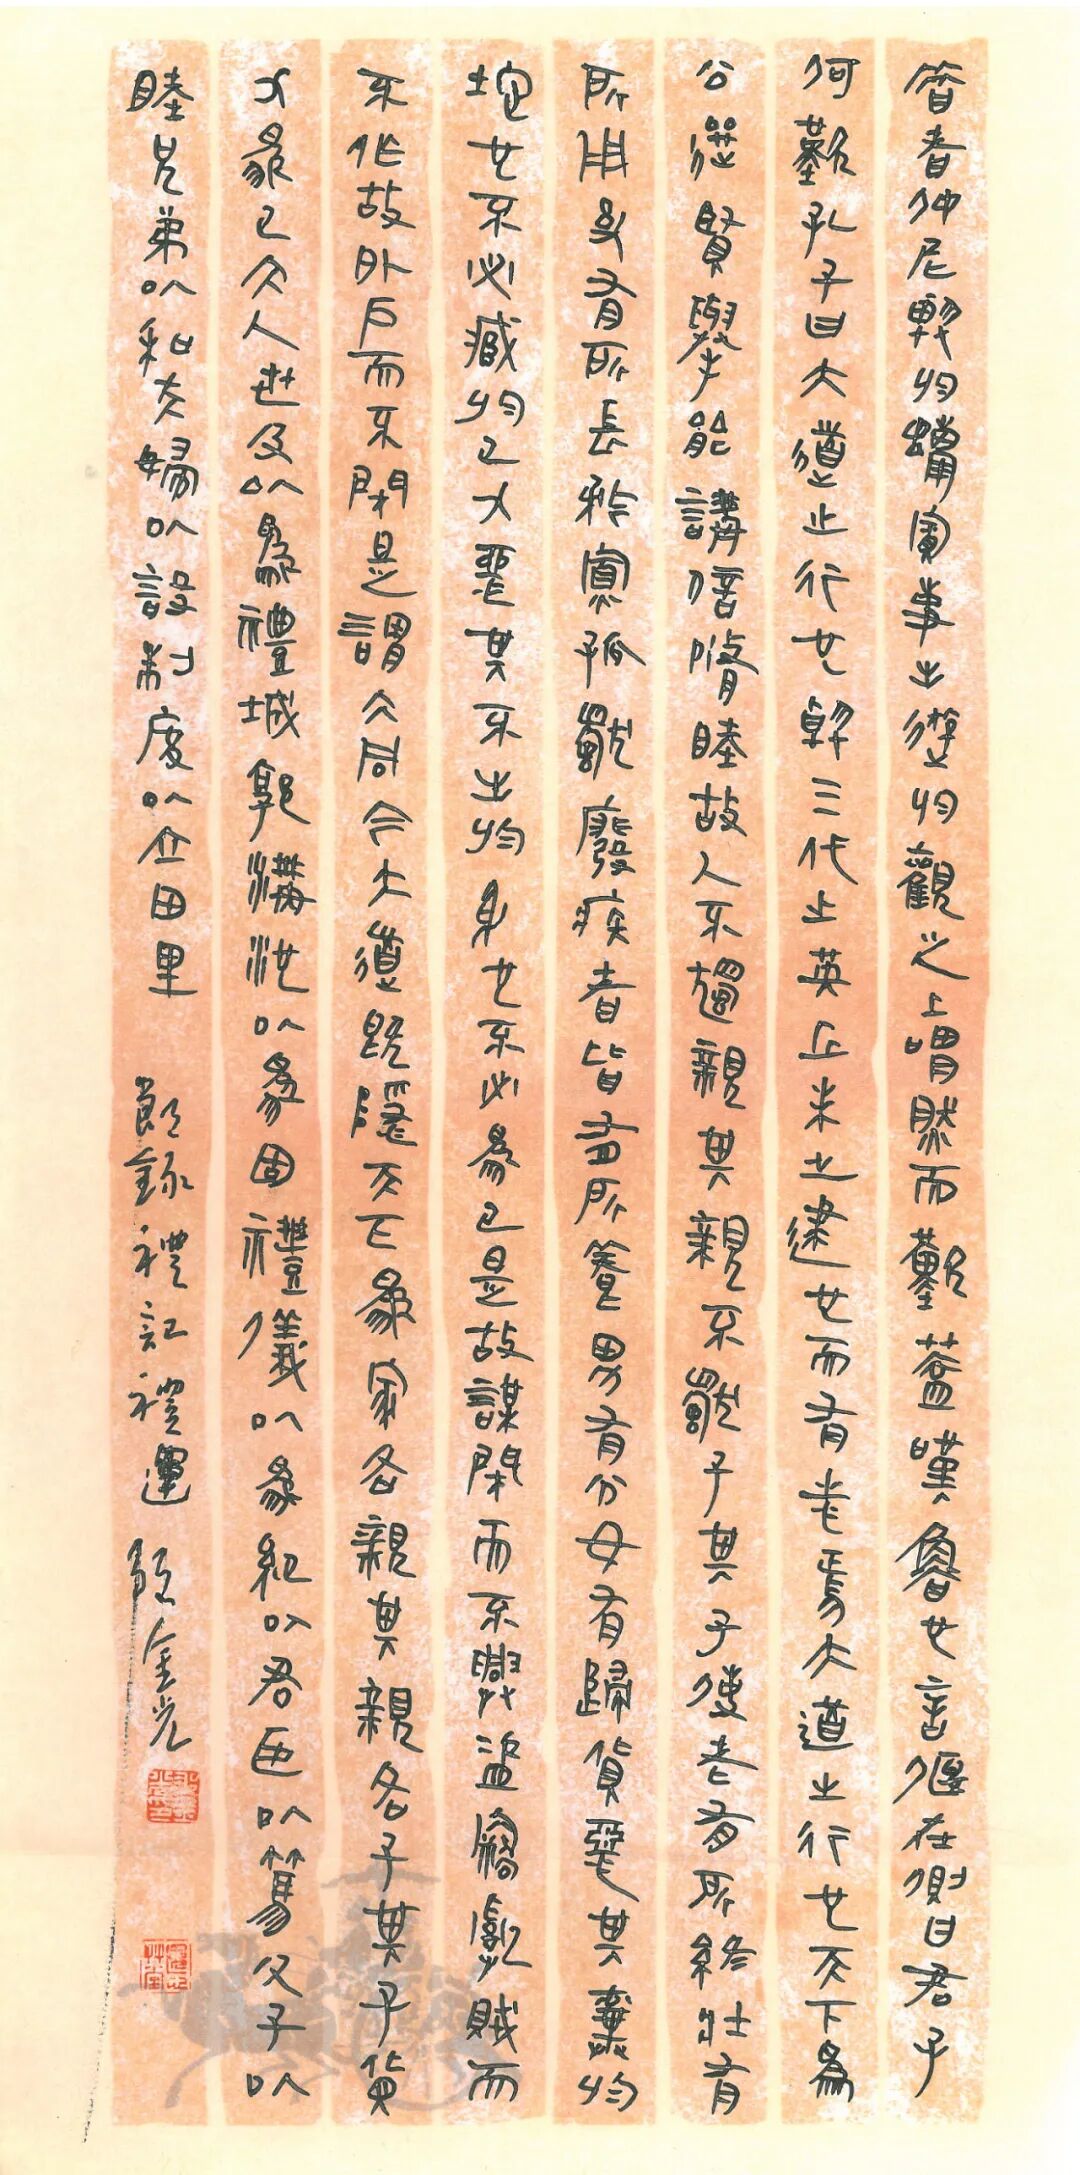 昔者仲尼與於蠟賓事出遊於觀之上喟然而歎蓋嘆魯也言偃在側曰君子
何歎孔子曰大道之行也與三代之英丘未之逮也而有志焉大道之行也天下為
公選賢舉能講信脩睦故人不獨親其親不獨子其子使老有所終壯有
所用幼有所長矜寡孤獨廢疾者皆有所養男有分女有歸貨惡其棄於
地也不必藏於己力惡其不出於身也不必為己是故謀閉而不興盜竊亂賊而
不作故外戶而不閉是謂大同今大道既隱天下為家各親其親各子其子貨
力為己大人世及以為禮城郭溝池以為固禮儀以為紀以君臣以篤父子以
睦兄弟以和夫婦以設制度以立田里 節錄禮記禮運 金光